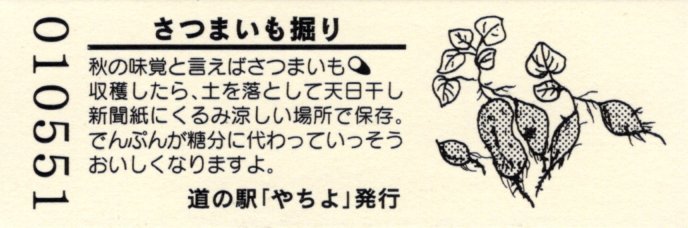 さつまいも掘り
秋の味覚と言えばさつまいも🍠
収穫したら、土を落として天日干し
新聞紙にくるみ涼しい場所で保存。
でんぷんが糖分に代わっていっそう
おいしくなりますよ。
道の駅「やちよ」発行
010551